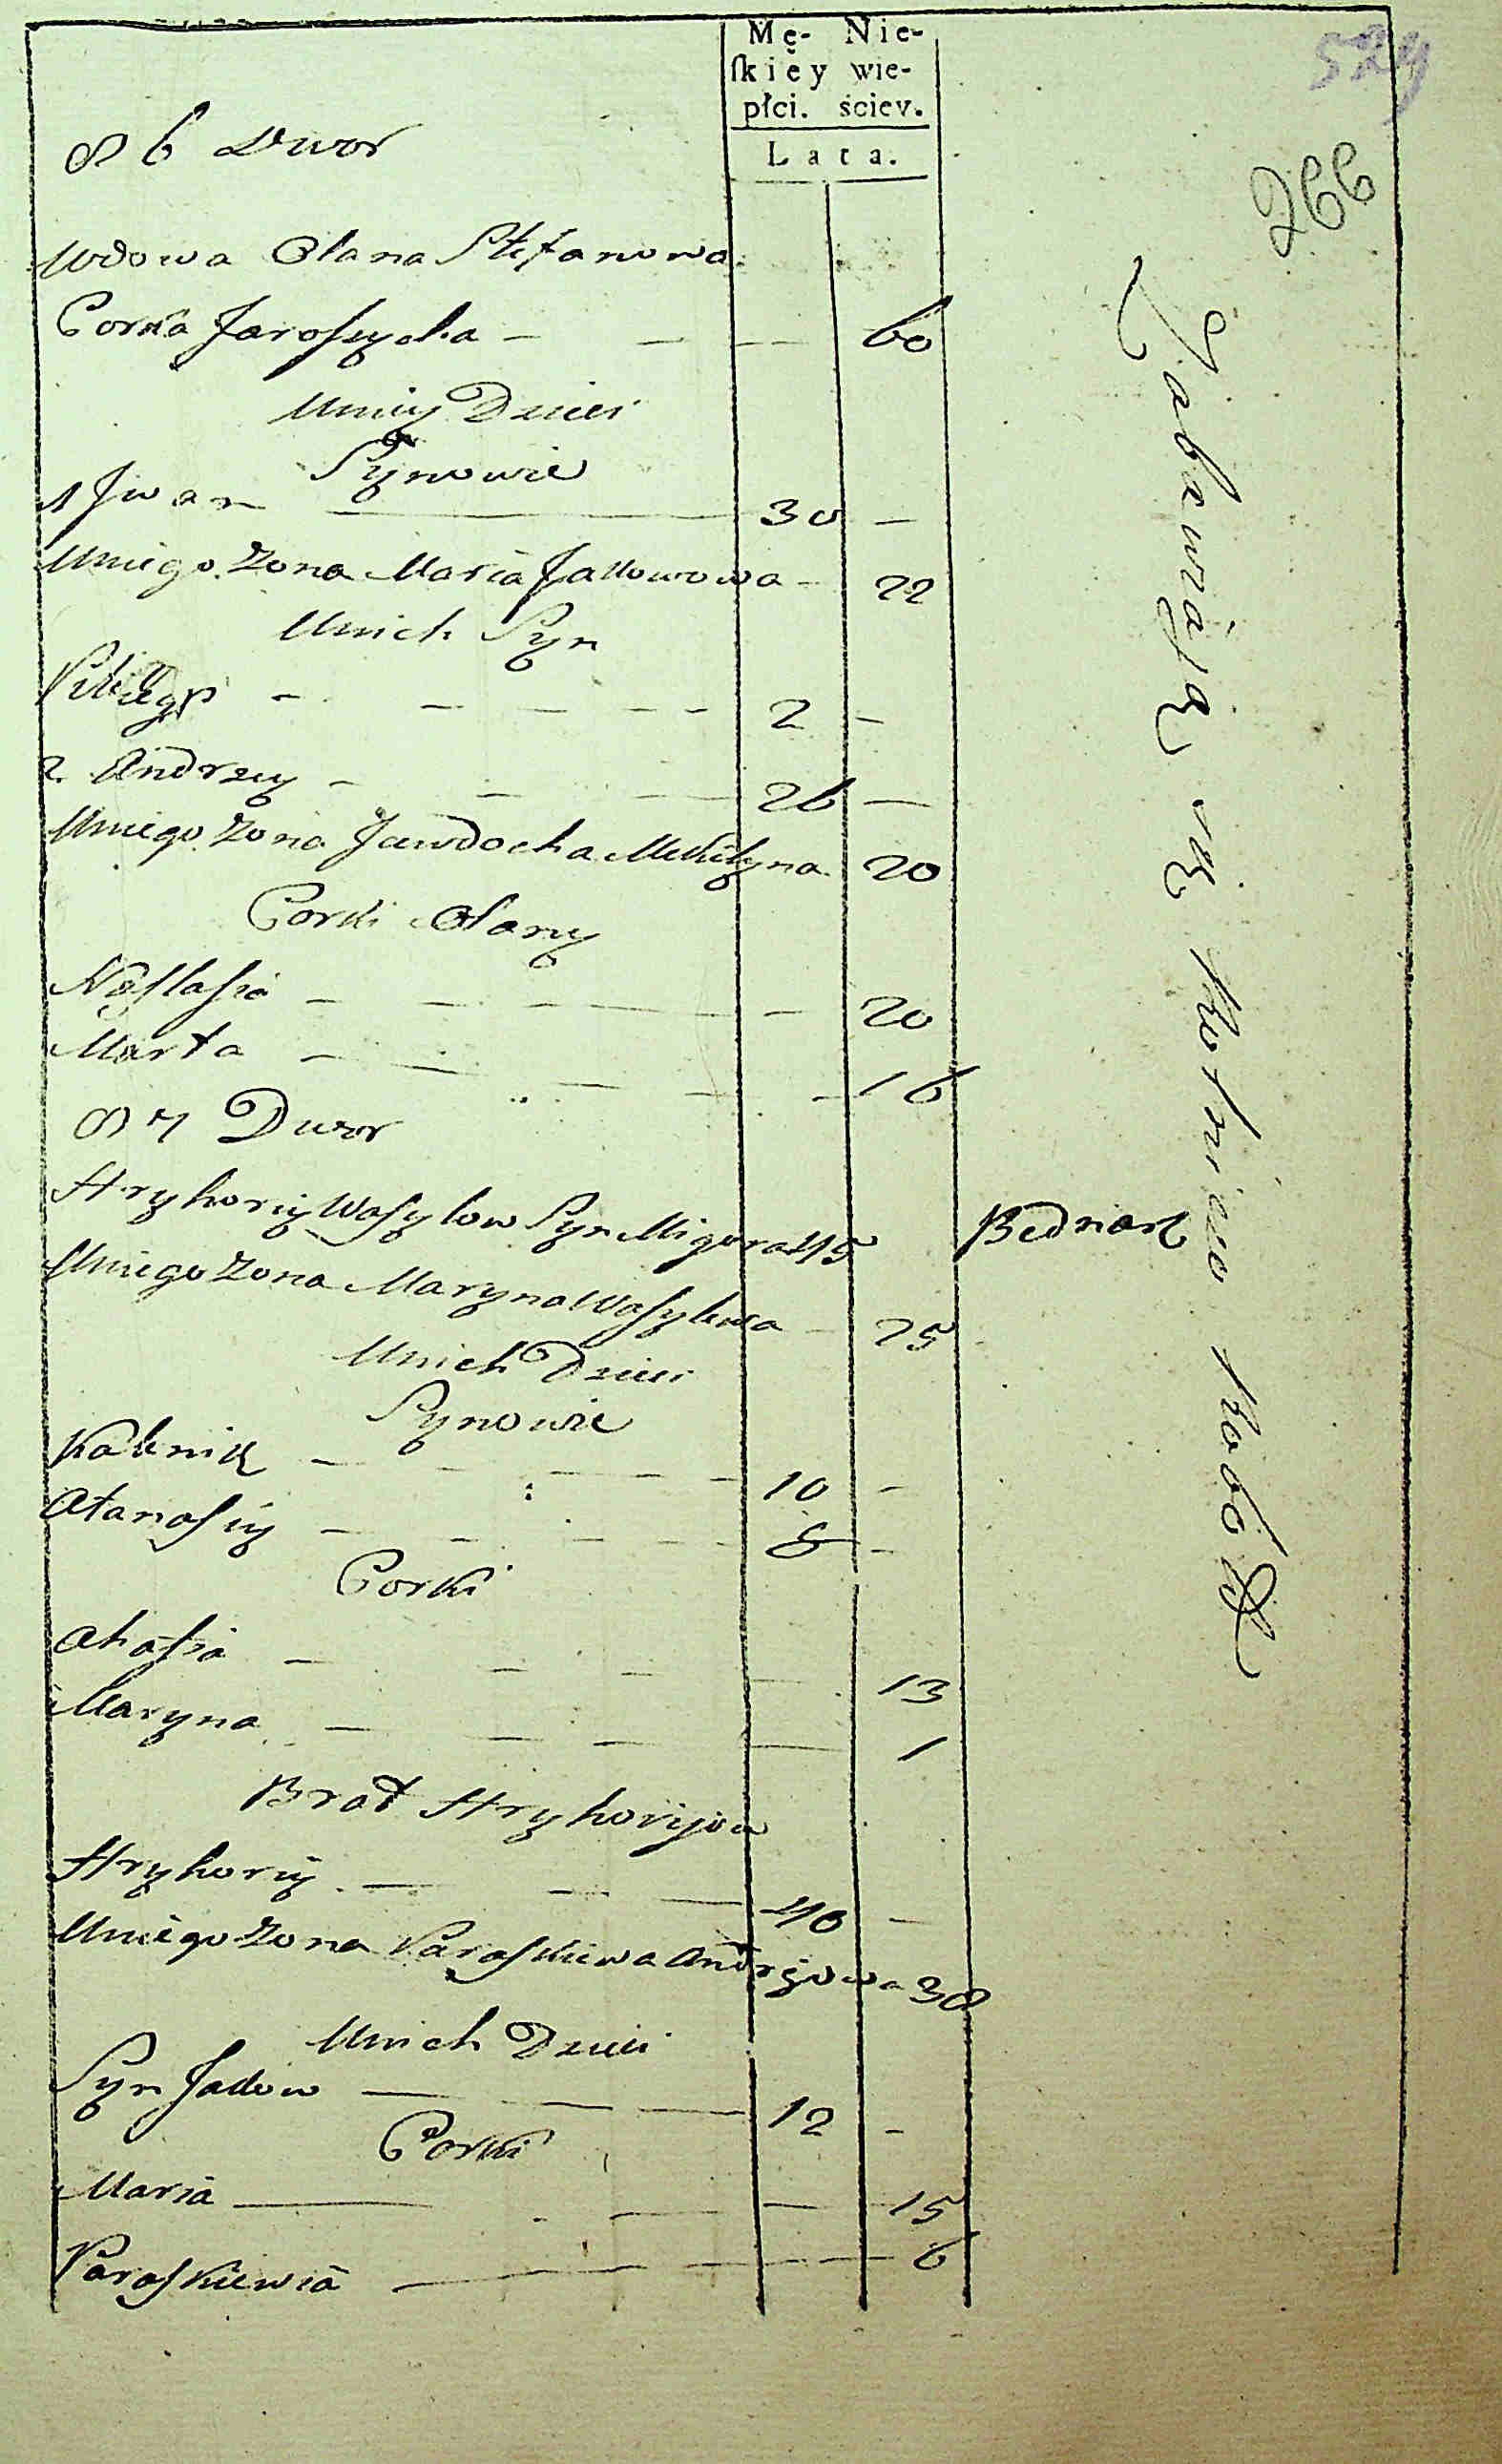 Mę- Nie-
ſkiey wie-
płci. ściey.
Lata.
529
266
86 Dwor
Wdowa Olana Stefanowa
Corka Jaroszycha - - - 60
U niey Dzieci
Synowie
1 Jwan 30 -
U niego Zona Maria Jakowowa - 22
U nich Syn
- - - - - 2 -
2 Andrzey - - - 26 -
U niego Zona Jawdocha Mikityna 20
Corki Olany
Nastasia - - - - 20
Marta - - - - 16
87 Dwor
Hryhoriy Wasylow Syn Migora 45 Bednarz
U niego Zona Maryna Wasylowa - 25
U nich Dzieci
Synowie
Kalenik - - - - 10 -
Atanasiy - - - - 8 -
Corki
Ahafia - - - - 13
Maryna - - - - 1
Brat Hryhoryiow
Hryhoriy - - - 40 -
U niego Zona Paraskiewa Andrzejowa 38
U nich Dzieci
Syn Jakow - - - 12 -
Corki
Maria - - - 15
Paraskiewia - - - 6
Zabawiają się Rolniczo Robotą